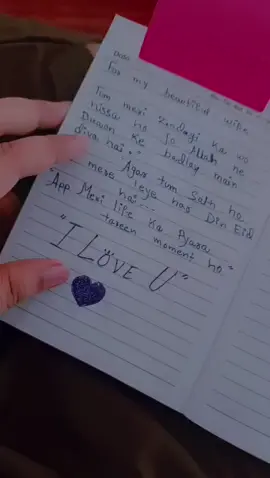 For my beautiful wife
Tum meri zindagi ka wo
hissa ho Jo Allah ne
Duaon ke badlay main
diya hai
Agar tum Sath ho
mere leye har Din Eid
hai
App Meri life Ka Pyara
tareen moment ho
"I LOVE U"